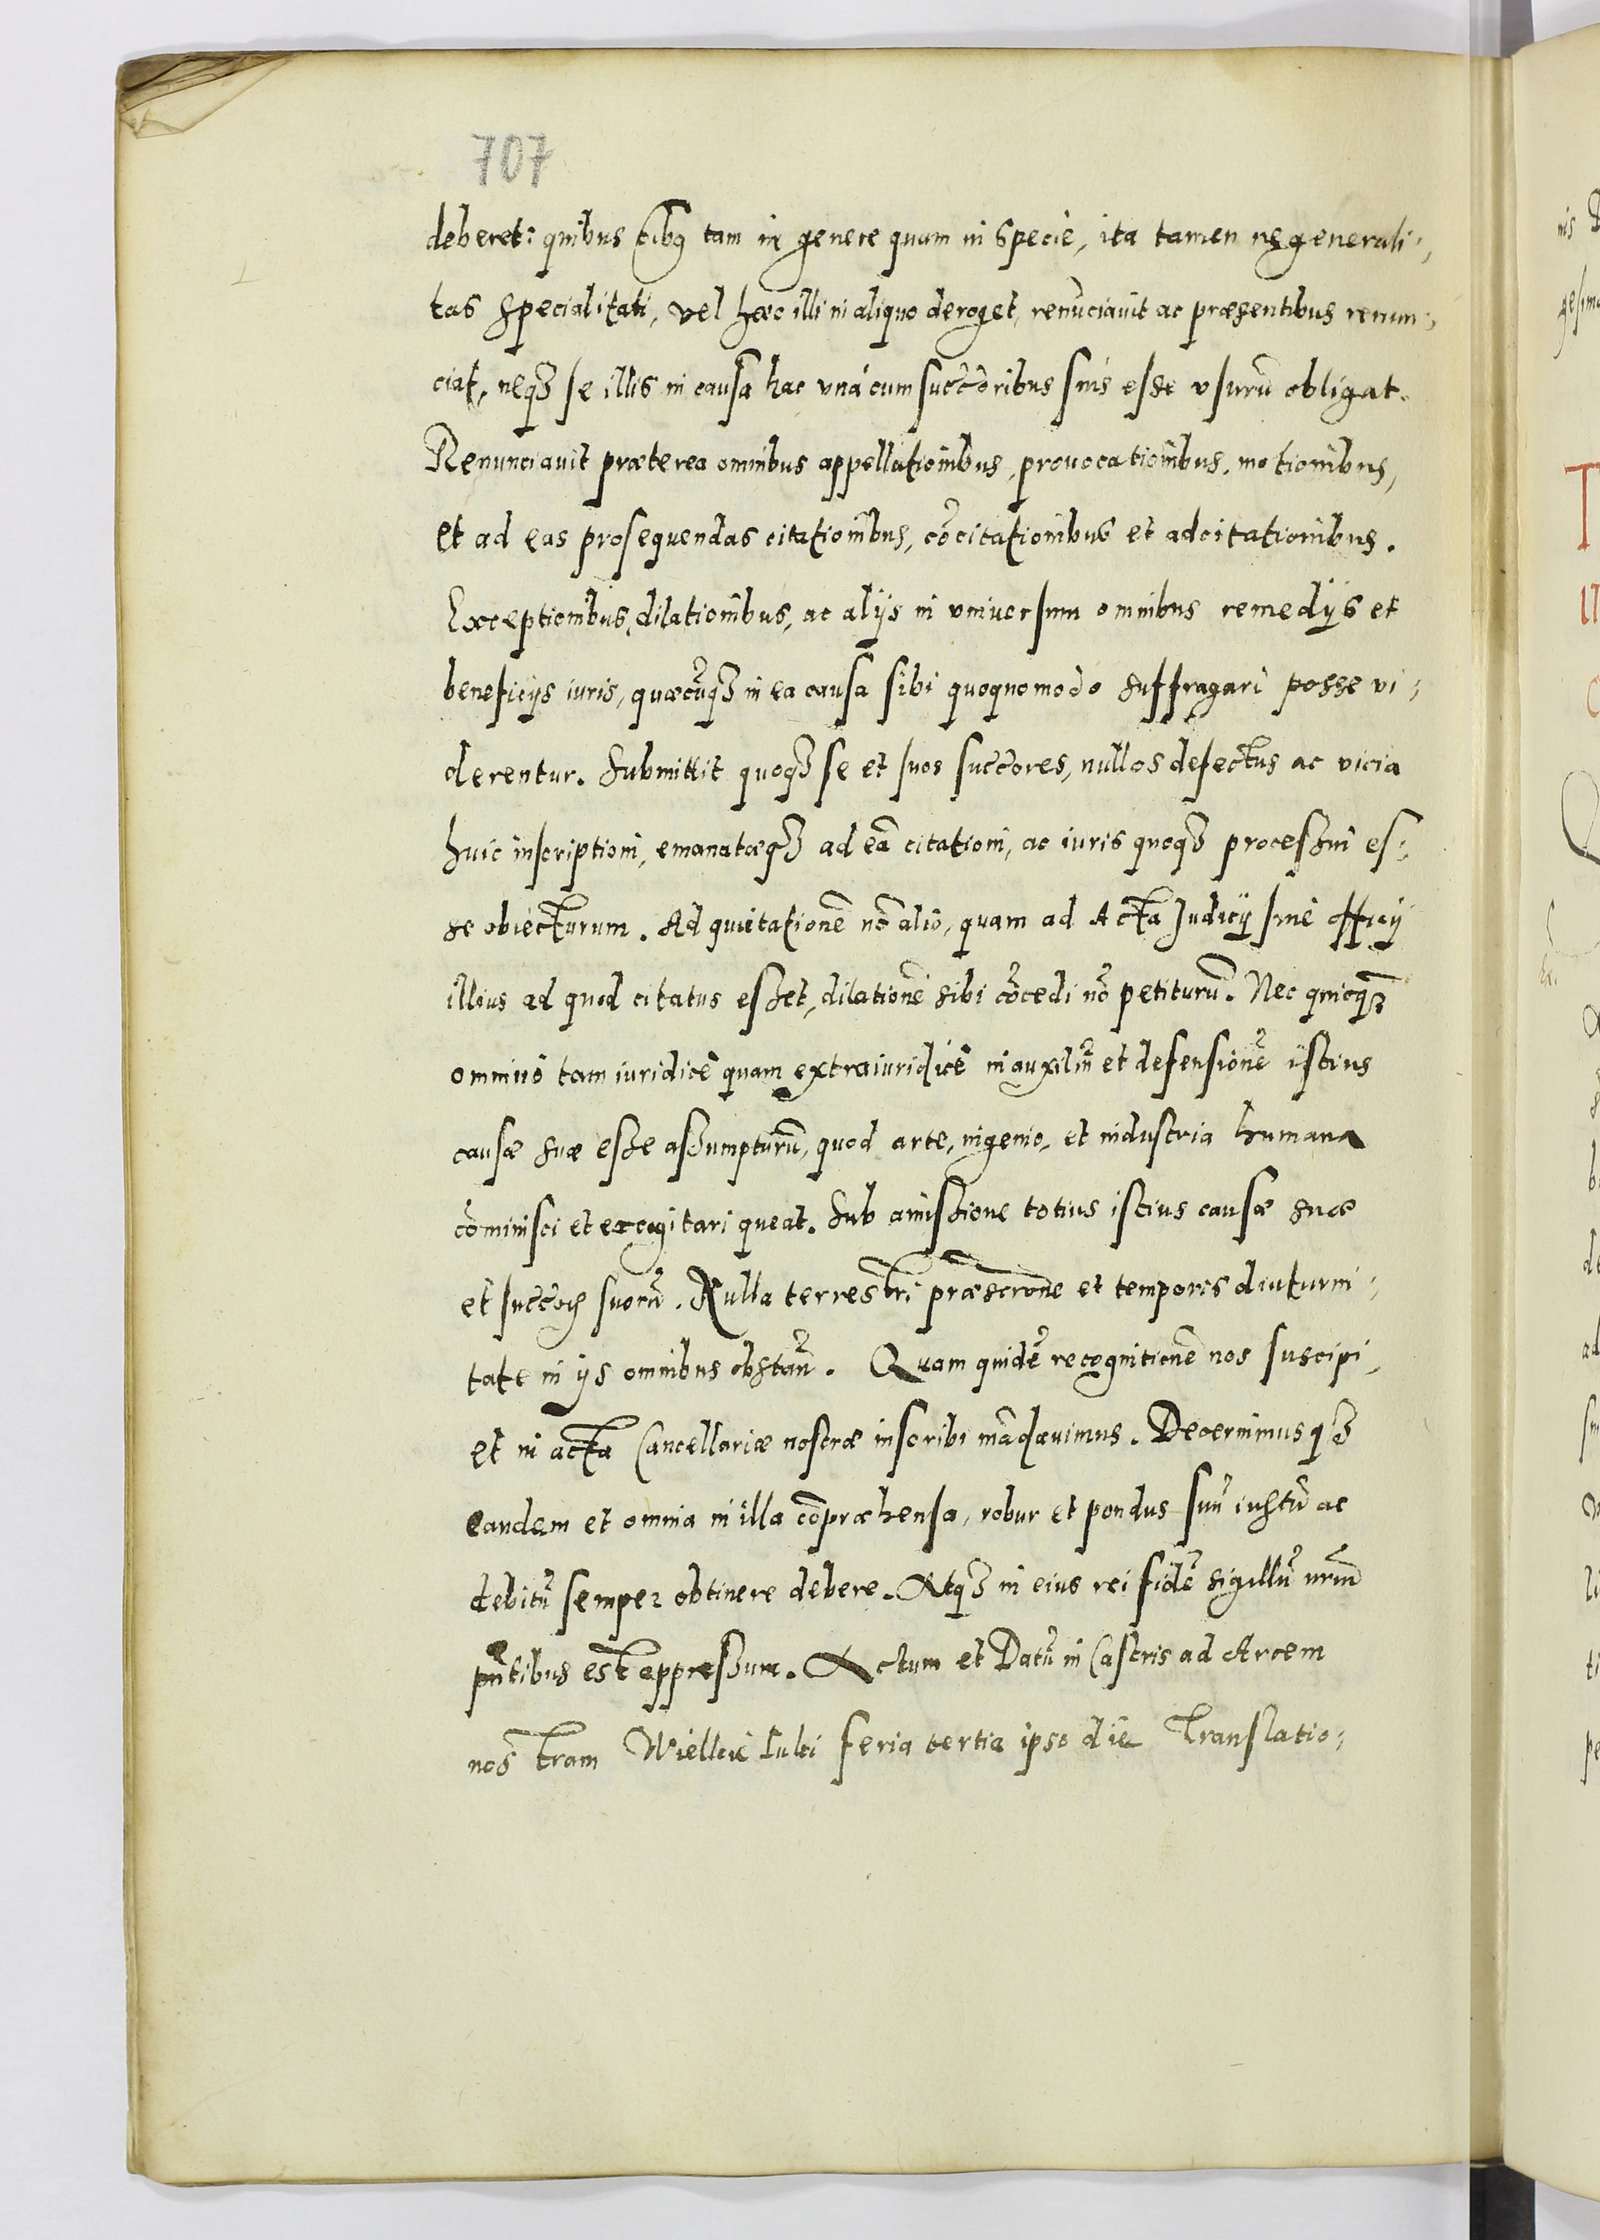 707
deberet: quibus oībꝰ tam in genere quam in specie, ita tamen ne generali⸗
tas specialitati, vel hæc illi in aliquo deroget, renūciauit ac præsentibus renun⸗
ciat, neqꝫ se illis in causa hac vnà cum succ̄oribus suis esse vsurū obligat.
Renunciauit præterea omnibus appellationibus, prouocationibus, motionibus,
et ad eas prosequendas citationibus, cōcitationibus et adcitationibus.
Exceptionibus, dilationibus, ac alijs in vniuersum omnibus remedijs et
beneficijs iuris, quæcūqꝫ in ea causa sibi quoquomodo suffragari posse vi⸗
derentur. Submittit quoqꝫ se et suos succ̄ores, nullos defectus ac vicia
huic inscriptioni, emanatæqꝫ ad eā citationi, ac iuris quoqꝫ processui es⸗
se obiecturum. Ad quietationē nō alio, quam ad Acta Judicij siue officij
illius ad quod citatus esset, dilationē sibi cōcedi nō petiturū. Nec quicqꝫ
omnino tam iuridicè quam extraiuridicè in auxiliū et defensionē istius
causæ suæ esse assumpturū, quod arte, ingenio, et industria humana
cōminisci et excogitari queat. Sub amissione totius istius causæ suæ
et succ̄oꝝ suorū. Nulla terrestri præscr̄one et temporis diuturni⸗
tate in ijs omnibus obstan̄. Quam quidē recognitionē nos suscipi,
et in acta Cancellariæ nostræ inscribi mādauimus. Decernimusqꝫ
eandem et omnia in illa cōpræhensa, robur et pondus suū iustū ac
debitū semper obtinere debere. Atqꝫ in eius rei fidē sigillū nr̄m
pn̄tibus est appressum. Actum et Datū in Castris ad Arcem
nostram Wielkie Luki feria tertia ipso die Translatio⸗